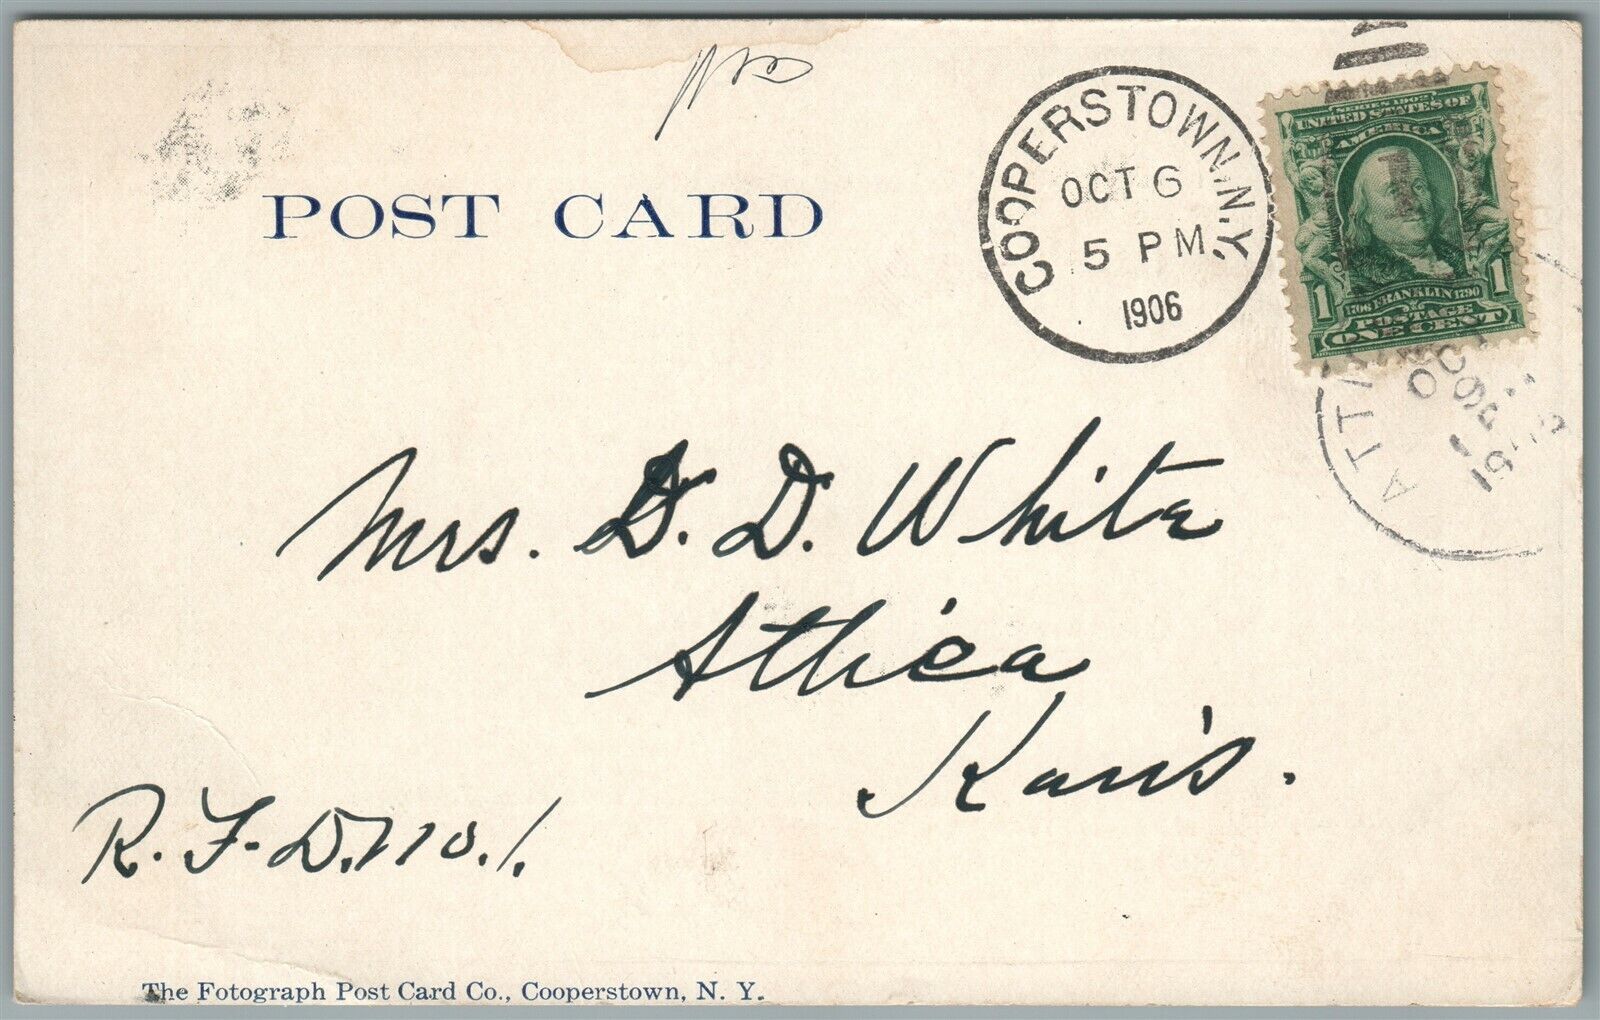 POST CARD
COOPERSTOWN, N.Y.
OCT 6
5 PM
1906
SERIES 1902
UNITED STATES OF
AMERICA
1 1
1706 FRANKLIN 1790
POSTAGE
ONE CENT
Mrs. D. D. White
Attica
Kans.
R. F. D. No. 1.
The Fotograph Post Card Co., Cooperstown, N. Y.